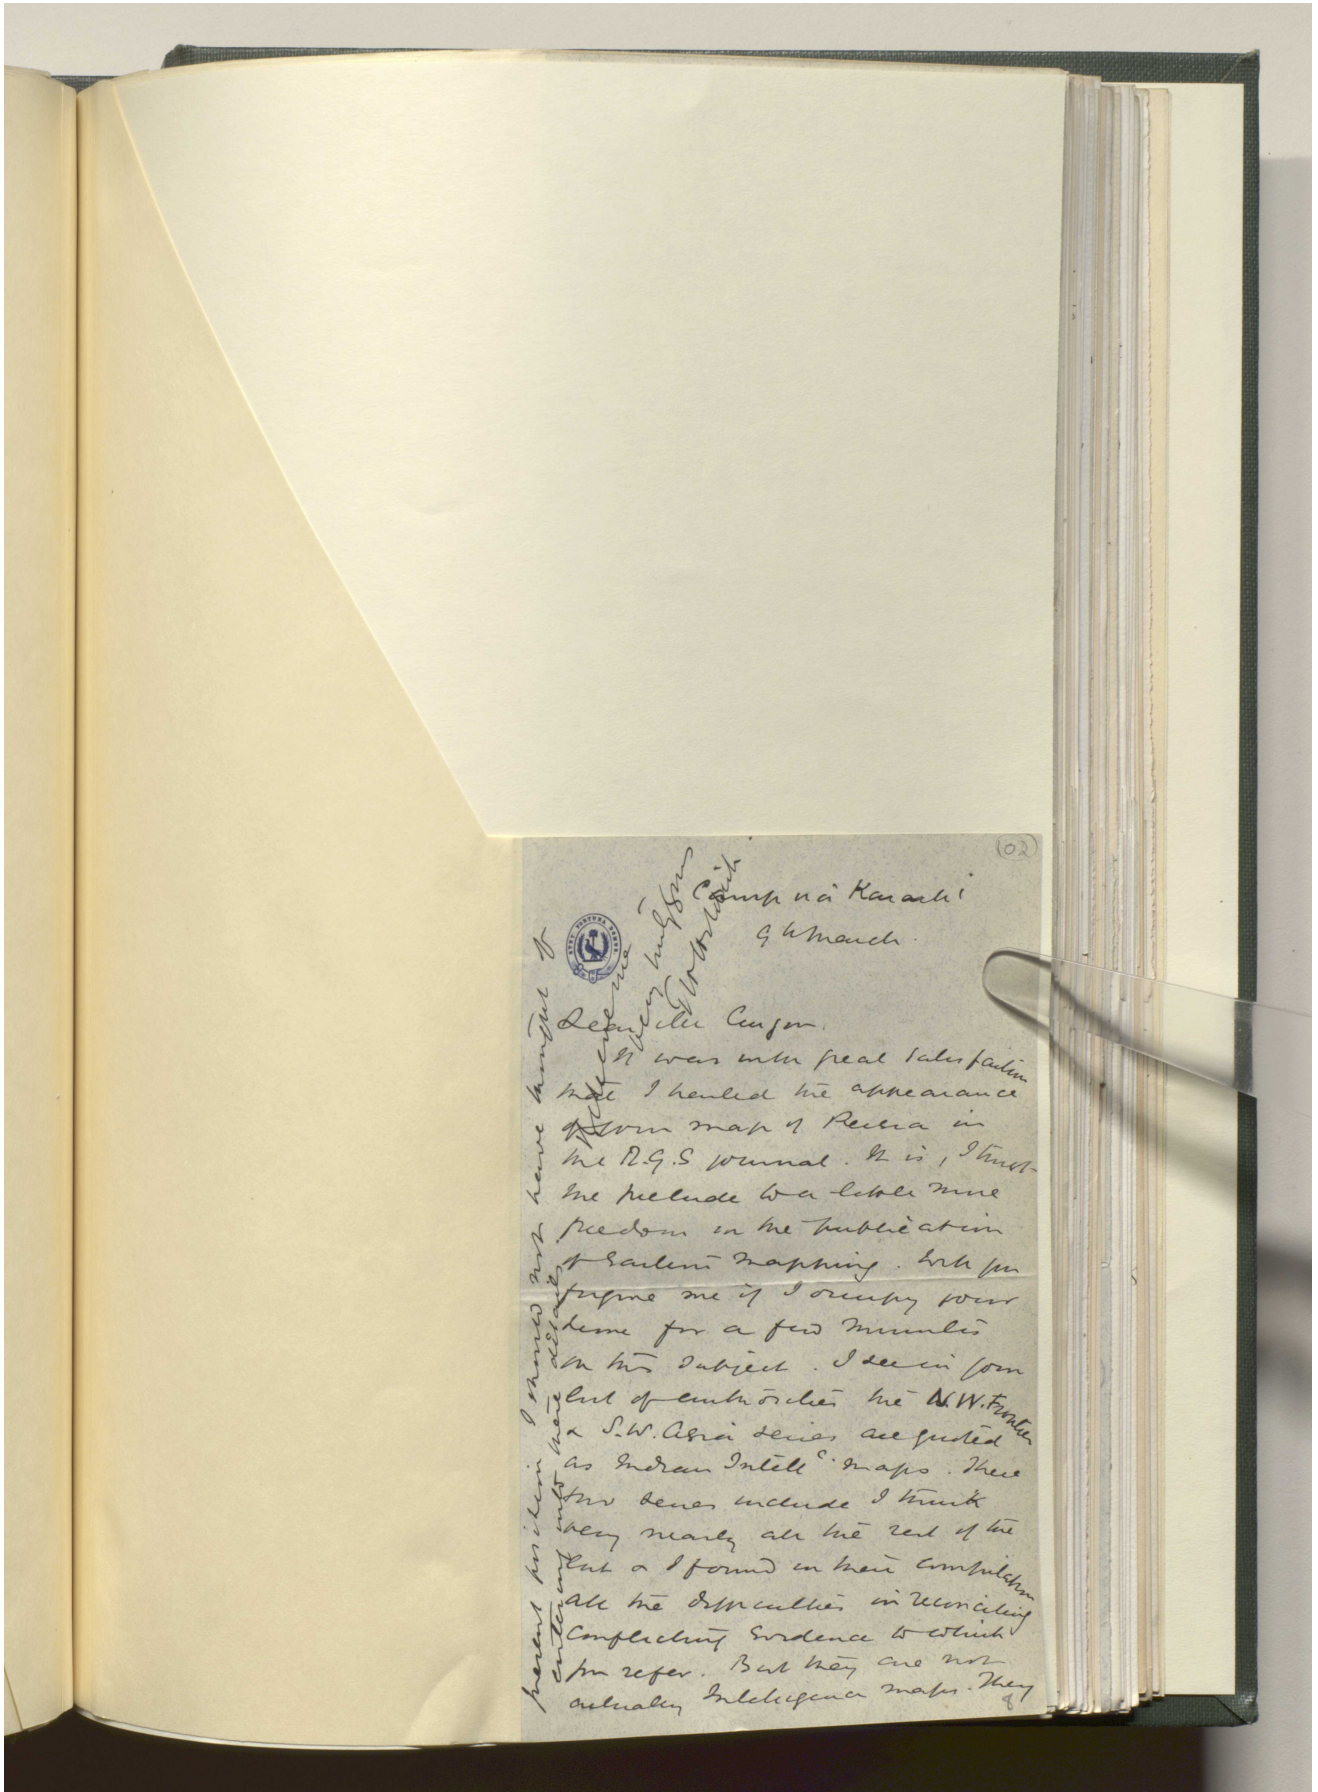 102
Camp via Karachi
9th March.
Dear Mr Curzon.
It was with great satisfaction
that I hailed the appearance
of your map of Persia in
the R.G.S journal. It is, I trust
the prelude to a little more
freedom in the publication
of Eastern mapping. Will you
forgive me if I occupy your
time for a few minutes
on this subject. I see in your
list of authorities the N.W. Frontier
& S.W. Asia series are quoted
as Indian Intell^ce. maps. These
two series include I think
very nearly all the rest of the
list & I found in their compilation
all the difficulties in reconciling
conflicting evidence to which
you refer. But they are not
actually Intelligence maps. They
present position I should not have thought of
entering into mere details
Believe me
very truly yours